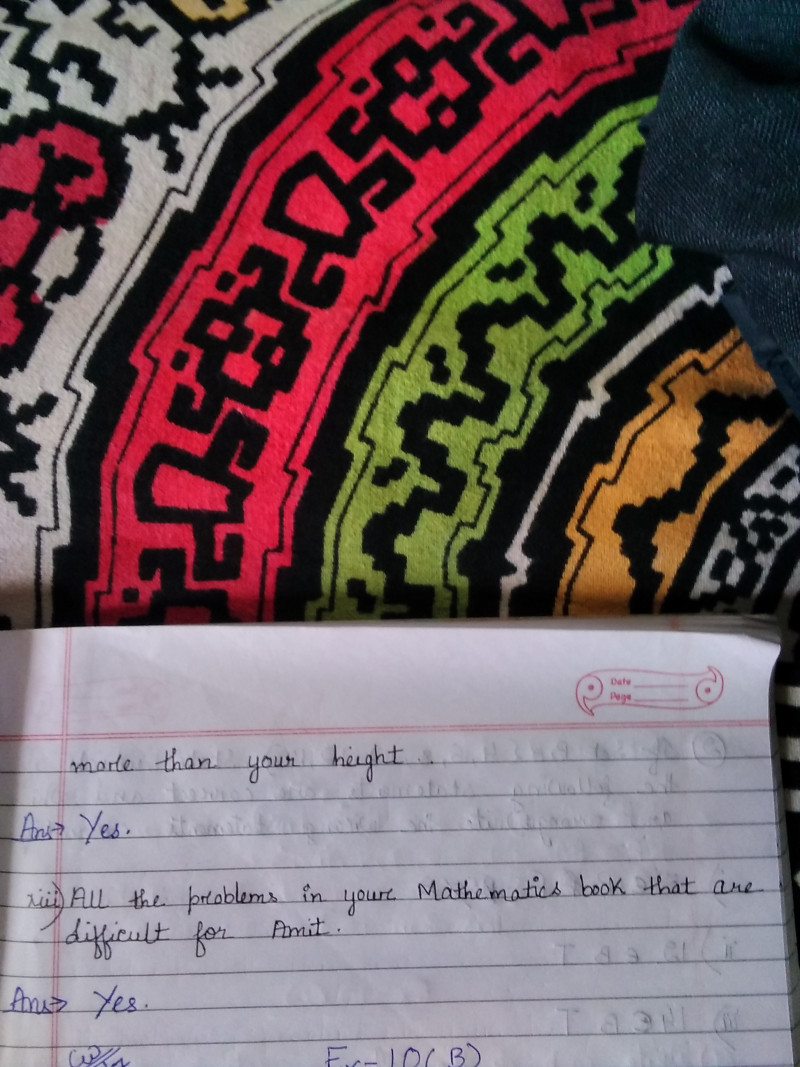 Date
Page
more than your height.
Ans→ Yes.
xiii) All the problems in your Mathematics book that are
difficult for Amit.
Ans→ Yes.
Ex-10(B)